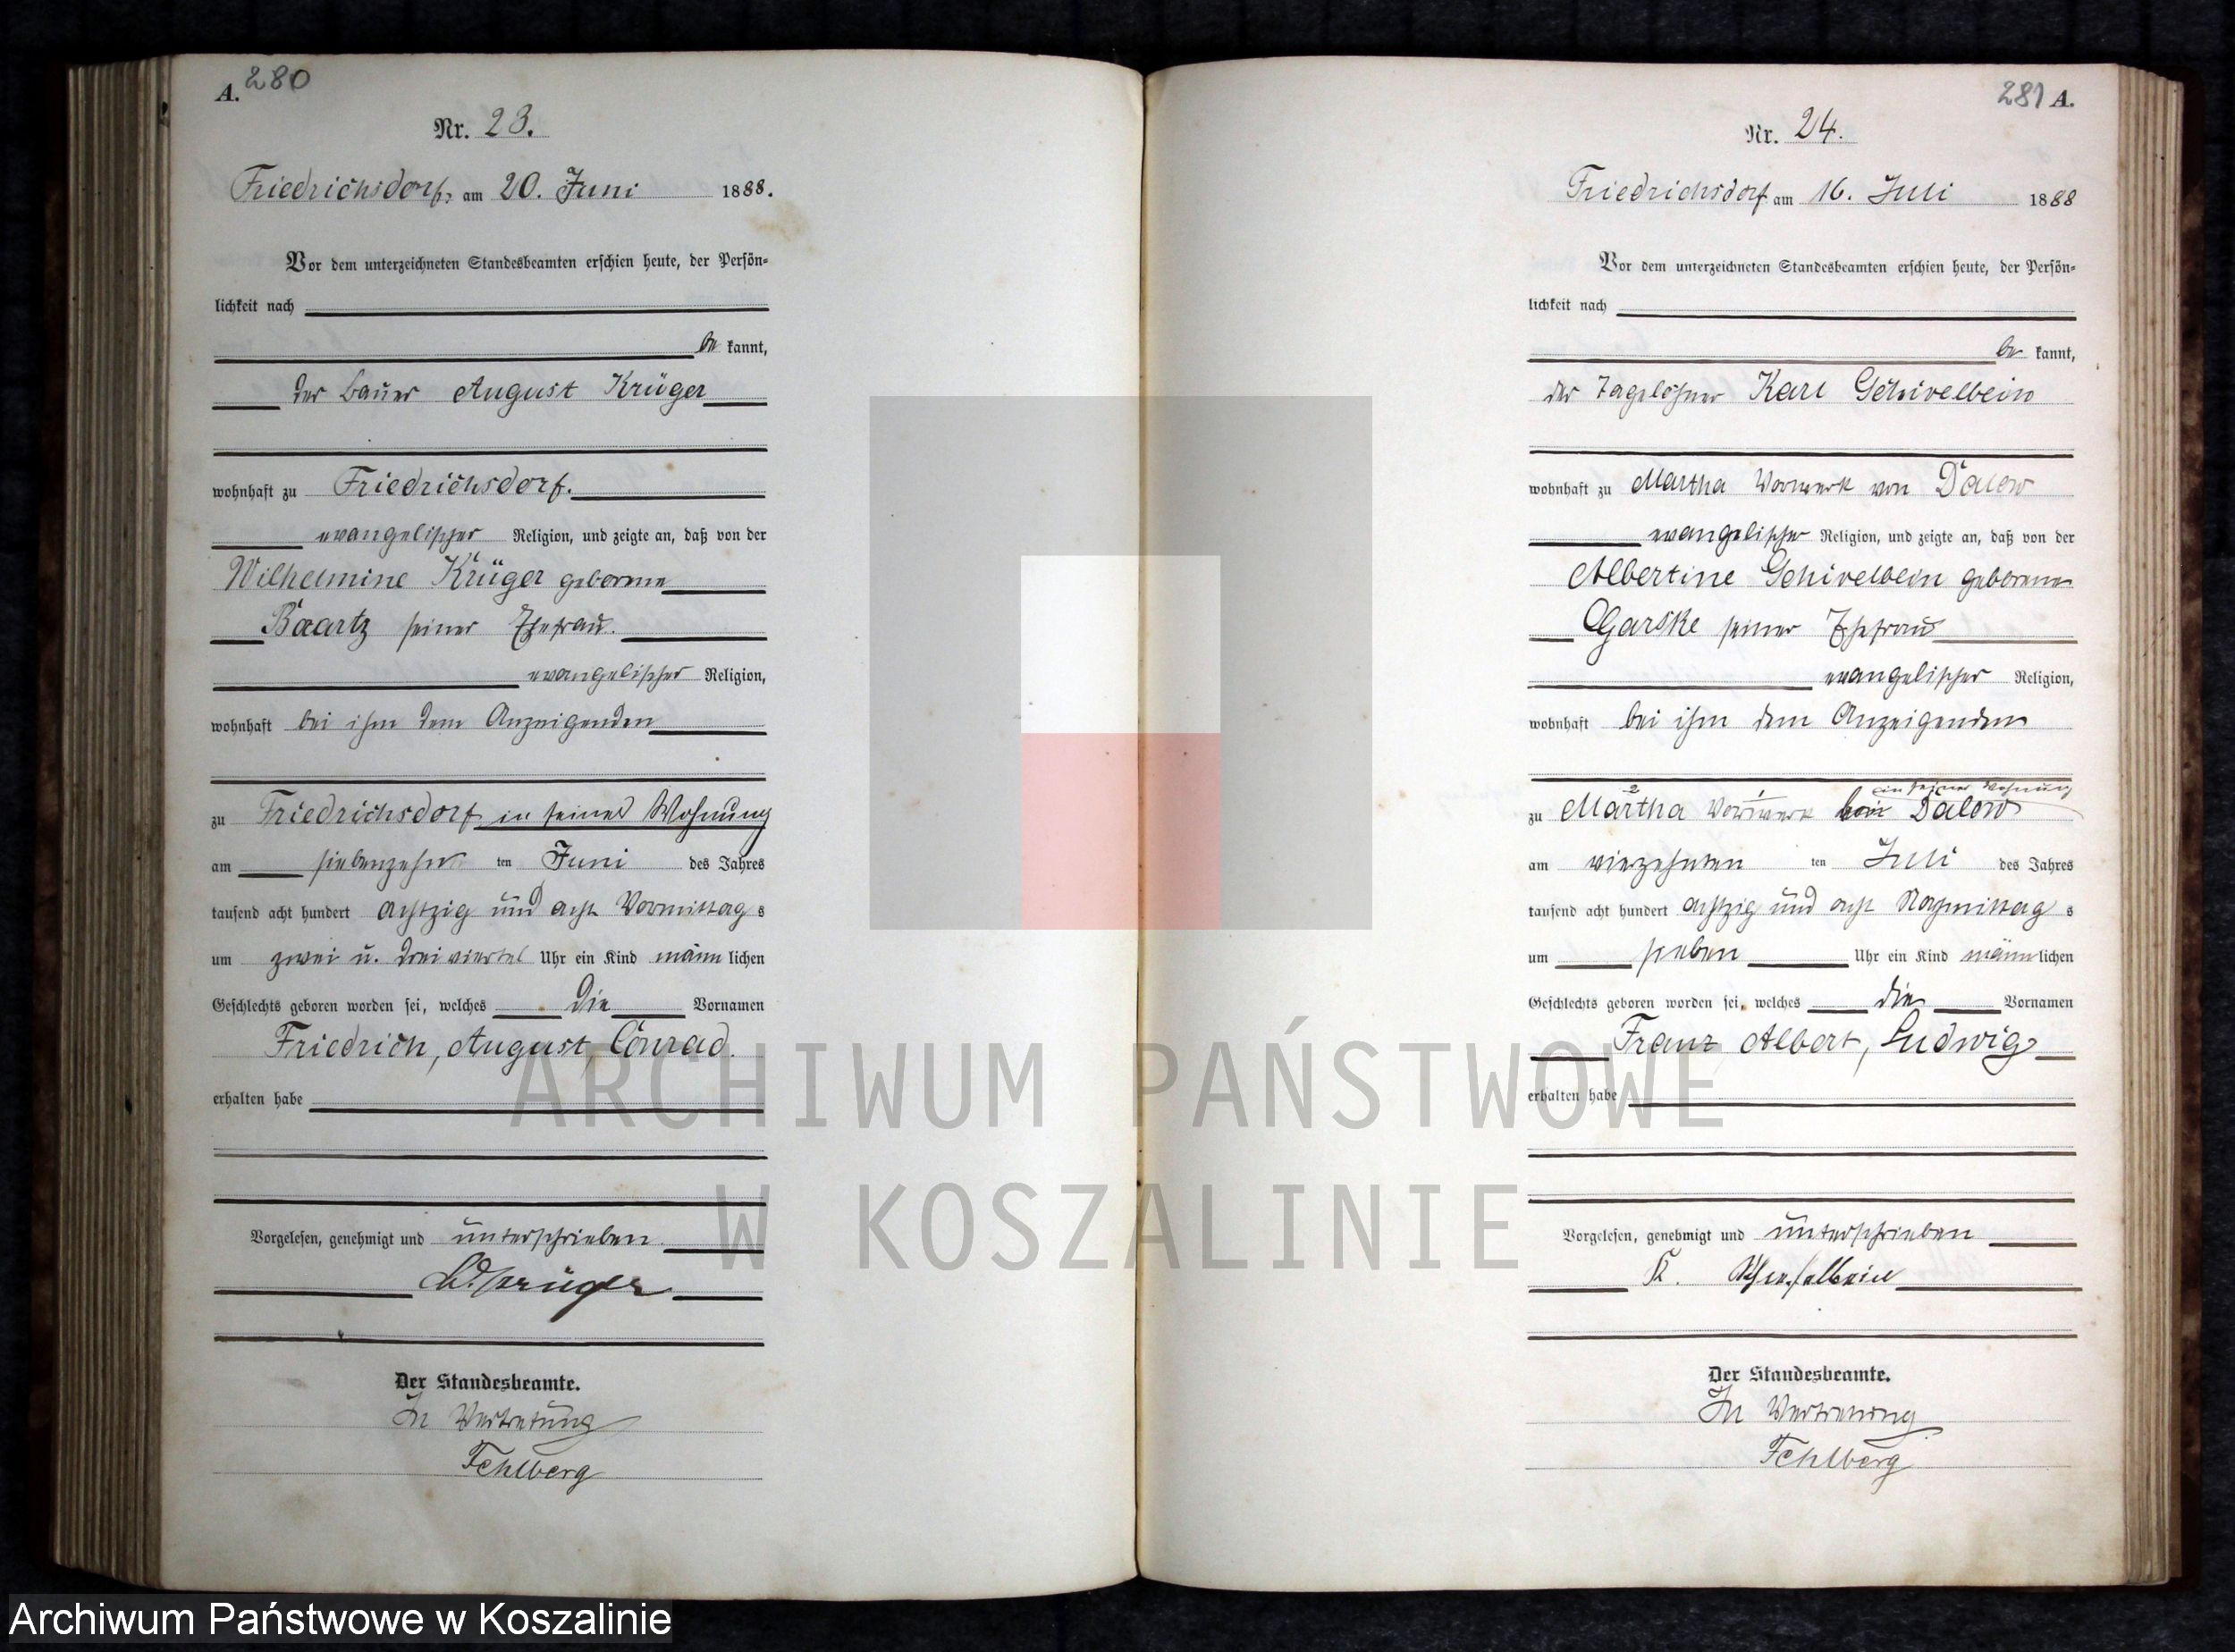 A. 280
Nr. 23.
Friedrichsdorf, am 20. Juni 1888.
Vor dem unterzeichneten Standesbeamten erschien heute, der Persön-
lichkeit nach
be kannt,
der Bauer August Krüger
wohnhaft zu Friedrichsdorf.
evangelischer Religion, und zeigte an, daß von der
Wilhelmine Krüger geborene
Baartz seiner Ehefrau.
evangelischer Religion,
wohnhaft bei ihm dem Anzeigenden
zu Friedrichsdorf in seiner Wohnung
am siebenzehn ten Juni des Jahres
tausend acht hundert achtzig und acht Vormittag s
um zwei u. dreiviertel Uhr ein Kind männ lichen
Geschlechts geboren worden sei, welches die Vornamen
Friedrich, August, Conrad.
erhalten habe
Vorgelesen, genehmigt und unterschrieben
Krüger
Der Standesbeamte.
In Vertretung
Fehlberg
281 A.
Nr. 24.
Friedrichsdorf am 16. Juli 1888
Vor dem unterzeichneten Standesbeamten erschien heute, der Persön-
lichkeit nach
be kannt,
der Tagelöhner Karl Schivelbein
wohnhaft zu Martha Vorwerk von Dalow
evangelischer Religion, und zeigte an, daß von der
Albertine Schivelbein geborene
Garske seiner Ehefrau
evangelischer Religion,
wohnhaft bei ihm dem Anzeigenden
in seiner Wohnung
zu Martha Vorwerk Dalow
am vierzehnten ten Juli des Jahres
tausend acht hundert achtzig und acht Nachmittag s
um sieben Uhr ein Kind männ lichen
Geschlechts geboren worden sei, welches die Vornamen
Franz Albert, Ludwig
erhalten habe
Vorgelesen, genehmigt und unterschrieben
K.
Der Standesbeamte.
In Vertretung
Fehlberg
ARCHIWUM PAŃSTWOWE
W KOSZALINIE
Archiwum Państwowe w Koszalinie